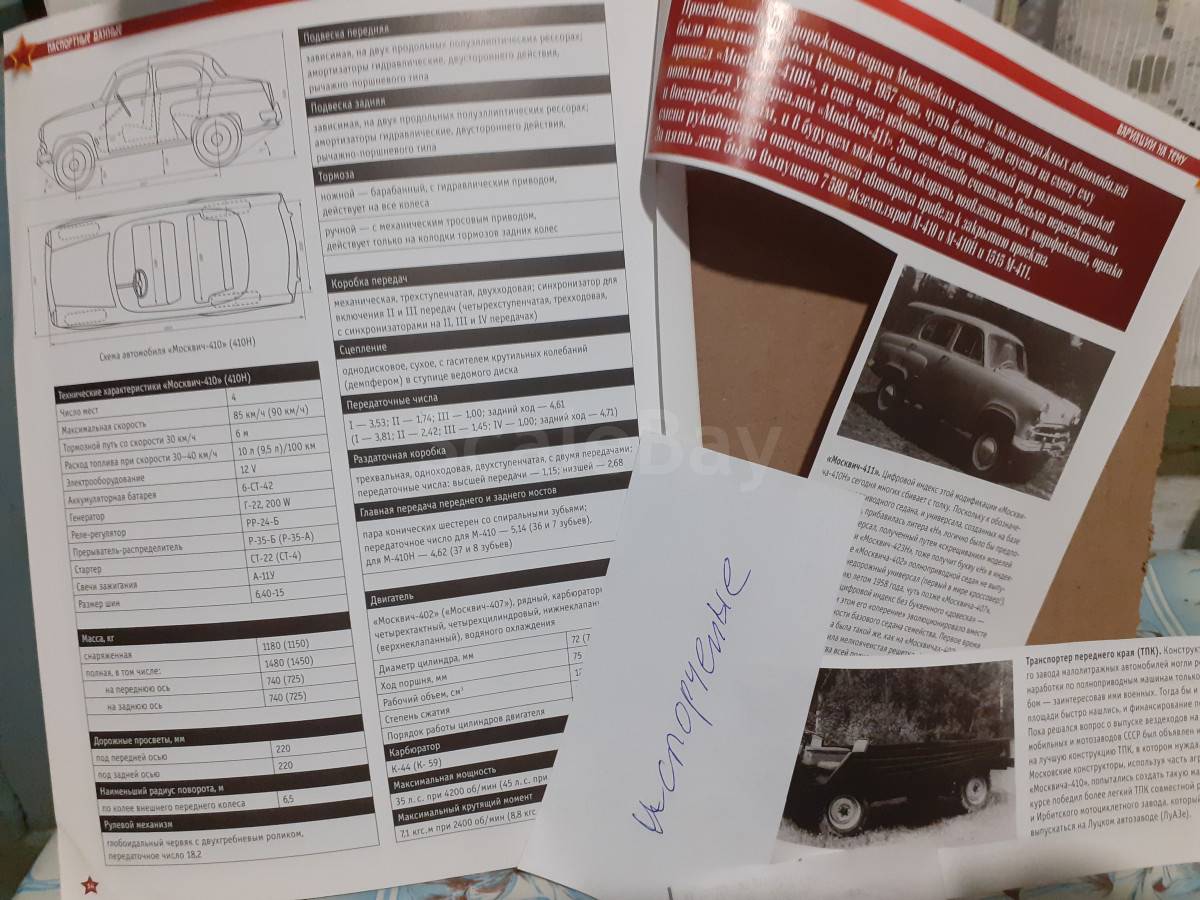 ПАСПОРТНЫЕ ДАННЫЕ
Схема автомобиля «Москвич-410» (410Н)
Технические характеристики «Москвич-410» (410Н)
Число мест 4
Максимальная скорость 85 км/ч (90 км/ч)
Тормозной путь со скорости 30 км/ч 6 м
Расход топлива при скорости 30–40 км/ч 10 л (9,5 л)/100 км
Электрооборудование 12 V
Аккумуляторная батарея 6-СТ-42
Генератор Г-22, 200 W
Реле-регулятор РР-24-Б
Прерыватель-распределитель Р-35-Б (Р-35-А)
Стартер СТ-22 (СТ-4)
Свечи зажигания А-11У
Размер шин 6,40-15
Масса, кг
снаряженная 1180 (1150)
полная, в том числе: 1480 (1450)
на переднюю ось 740 (725)
на заднюю ось 740 (725)
Дорожные просветы, мм
под передней осью 220
под задней осью 220
Наименьший радиус поворота, м
по колее внешнего переднего колеса 6,5
Рулевой механизм
глобоидальный червяк с двухгребневым роликом,
передаточное число 18,2
Подвеска передняя
зависимая, на двух продольных полуэллиптических рессорах;
амортизаторы гидравлические, двустороннего действия,
рычажно-поршневого типа
Подвеска задняя
зависимая, на двух продольных полуэллиптических рессорах;
амортизаторы гидравлические, двустороннего действия,
рычажно-поршневого типа
Тормоза
ножной — барабанный, с гидравлическим приводом,
действует на все колеса
ручной — с механическим тросовым приводом,
действует только на колодки тормозов задних колес
Коробка передач
механическая, трехступенчатая, двухходовая; синхронизатор для
включения II и III передач (четырехступенчатая, трехходовая,
с синхронизаторами на II, III и IV передачах)
Сцепление
однодисковое, сухое, с гасителем крутильных колебаний
(демпфером) в ступице ведомого диска
Передаточные числа
I — 3,53; II — 1,74; III — 1,00; задний ход — 4,61
(I — 3,81; II — 2,42; III — 1,45; IV — 1,00; задний ход — 4,71)
Раздаточная коробка
трехвальная, одноходовая, двухступенчатая, с двумя передачами;
передаточные числа: высшей передачи — 1,15; низшей — 2,68
Главная передача переднего и заднего мостов
пара конических шестерен со спиральными зубьями;
передаточное число для М-410 — 5,14 (36 и 7 зубьев),
для М-410Н — 4,62 (37 и 8 зубьев)
Двигатель
«Москвич-402» («Москвич-407»), рядный, карбюратор
четырехтактный, четырехцилиндровый, нижнеклапан
(верхнеклапанный), водяного охлаждения
Диаметр цилиндра, мм 72 (7
Ход поршня, мм 75
Рабочий объем, см³
Степень сжатия
Порядок работы цилиндров двигателя
Карбюратор
К-44 (К-59)
Максимальная мощность
35 л. с. при 4200 об/мин (45 л. с. при
Максимальный крутящий момент
7,1 кгс.м при 2400 об/мин (8,8 кгс.
ВАРИАЦИИ НА ТЕМУ
дорожного седана Московским заводом малолитражных автомобилей
было начато квартале 1957 года, чуть больше года спустя на смену ему
пришел «Москвич-410Н», а еще через некоторое время модельный ряд полноприводников
пополнился «Москвич-411». Это семейство считалось весьма перспективным
и в будущем можно было ожидать появления новых модификаций, однако
смена руководства отечественного автопрома привела к закрытию проекта.
За пять лет было выпущено 7 580 экземпляров М-410 и М-410Н и 1515 М-411.
«Москвич-411». Цифровой индекс этой модификации «Москви-
ча-410Н» сегодня многих сбивает с толку. Поскольку к обозначе-
приводного седана, и универсала, созданных на базе
прибавилась литера «Н», логично было бы предпо-
версал, полученный путем «скрещивания» моделей
и «Москвич-423Н», тоже получит букву «Н» в индек-
е «Москвича-402» полноприводной седан не выпу-
недорожный универсал (первый в мире кроссовер!)
летом 1958 года, чуть позже «Москвича-407»,
цифровой индекс без буквенного «довеска» —
этом его «оперение» эволюционировало вместе
ности базового седана семейства. Первое время
была такой же, как на «Москвичах-
ла мелкоячеистая решетка
Транспортер переднего края (ТПК). Конструкт
го завода малолитражных автомобилей могли ре
наработки по полноприводным машинам только
бом — заинтересовав ими военных. Тогда бы и
площади быстро нашлись, и финансирование п
Пока решался вопрос о выпуске вездеходов на
мобильных и мотозаводов СССР был объявлен
на лучшую конструкцию ТПК, в котором нужда
Московские конструкторы, используя часть агр
«Москвича-410», попытались создать такую ма
курсе победил более легкий ТПК совместной р
и Ирбитского мотоциклетного завода, который
выпускаться на Луцком автозаводе (ЛуАЗе).
испорченые
ScaleBay